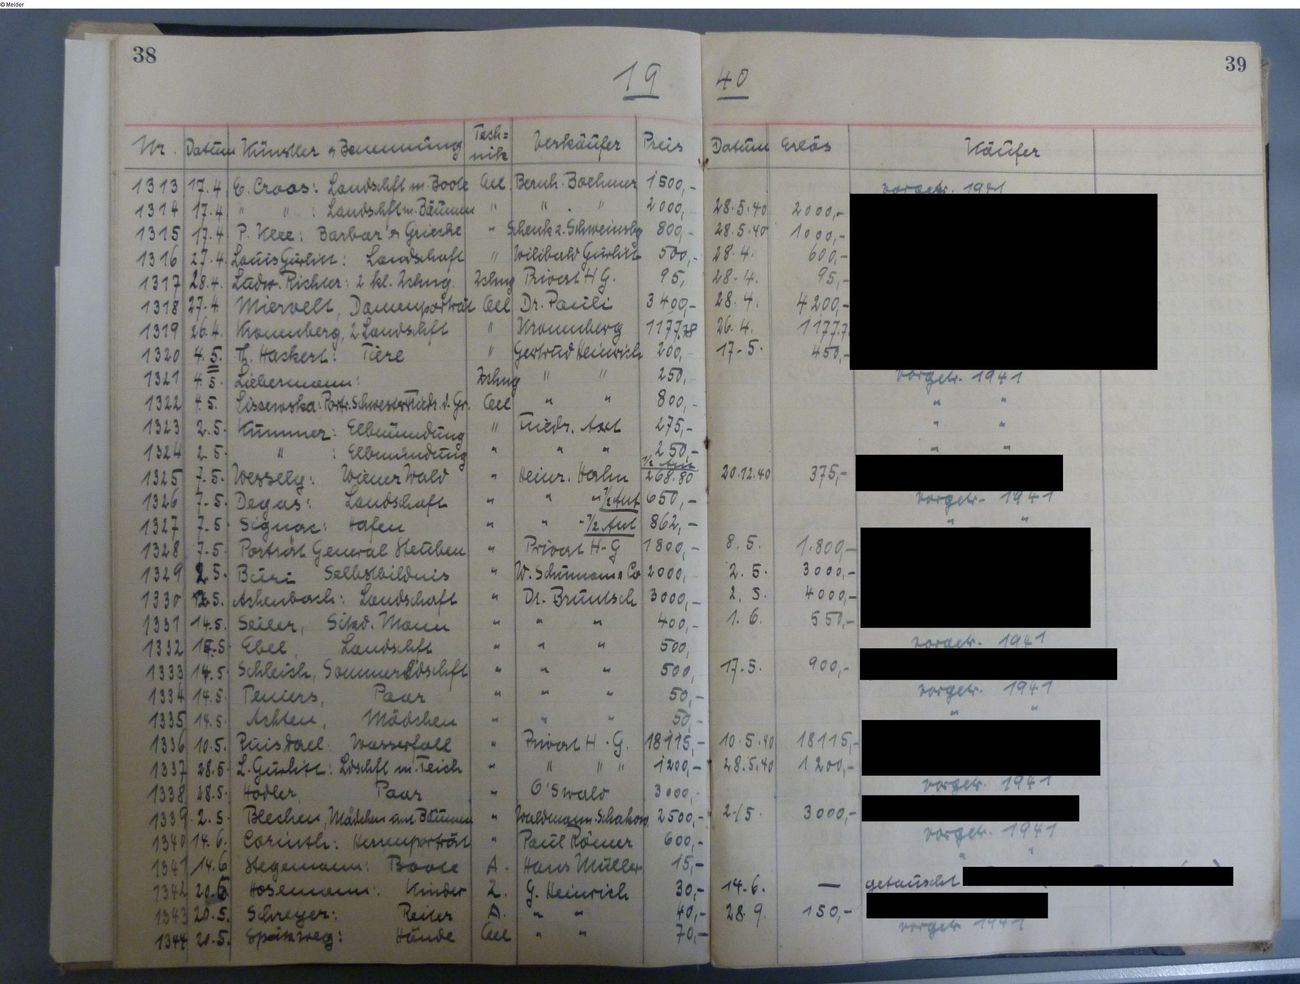 © Melder
38
39
19 40
Nr. Datum Künstler u Benennung Tech=nik Verkäufer Preis Datum Erlös Käufer
1313 17.4. E. Croos: Landschft m. Boote Oel Bernh. Boehmer 1500,- vorgetr. 1941
1314 17.4 " " : Landschft m. Bäumen " " " 2000,- 28.5.40 2000,-
1315 17.4 P. Klee: Barbar u Grieche " Schenk z. Schweinsbg 800,- 28.5.40 1000,-
1316 27.4. Louis Gurlitt: Landschaft " Wilibald Gurlitt 500,- 28.4. 600,-
1317 28.4. Ludw. Richter: 2 kl. Zchng. Zchng Privat H G. 95, 28.4. 95,-
1318 27.4 Miervelt, Damenporträt Oel Dr. Pauli 3400,- 28.4. 4200,-
1319 26.4. Kronenberg, 2 Landschft " Kronenberg 1177.78 26.4. 1177.7
1320 4.5. Th. Haskert: Tiere " Gertrud Heinrich 200,- 17.5. 450,-
1321 4.5. Liebermann: Zchng " " 250,- vorgetr. 1941
1322 4.5. Lisiewska: Portr. Schwester Friedr. d. Gr. Oel " " 800,- " "
1323 2.5. Kummer: Elbmündung " Friedr. Axt 275,- " "
1324 2.5. " : Elbmündung " " " 250,- " "
1325 7.5. Wessely: Wiener Wald " Heinr. Hahn ½ Ant 268.80 20.12.40 375,-
1326 7.5. Degas: Landschaft " " " ½ Ant 650,- vorgetr. 1941
1327 7.5. Signac: Hafen " " - ½ Ant 862,- " "
1328 7.5. Porträt General Steuben " Privat H-G 1800,- 8.5. 1.800,-
1329 2.5. Buri Selbstbildnis " W. Schumann u Co 2000,- 2.5. 3000,-
1330 2.5. Achenbach: Landschaft " Dr. Bruntsch 3000,- 2.5. 4000,-
1331 14.5. Seiler, Sitzd. Mann " " " 400,- 1.6. 550,-
1332 15.5. Ebel, Landschft " " " 500, vorgetr. 1941
1333 14.5. Schleich, Sommerldschft " " " 500, 17.5. 900,-
1334 14.5. Teniers, Paar " " " 50,- vorgetr. 1941
1335 14.5. Achten, Mädchen " " " 50,- " "
1336 10.5. Ruisdael: Wasserfall " Privat H-G. 18115,- 10.5.40 18115,-
1337 28.5. L. Gurlitt: Ldschft m. Teich " " " " 1200,- 28.5.40 1200,-
1338 28.5. Hodler, Paar " O'Swald 3000,- vorgetr. 1941
1339 2.5. Blechen, Mädchen am Brunnen " 2500,- 2/5. 3000,-
1340 14.6. Corinth: Herrenporträt " Paul Römer 600,- vorgetr. 1941
1341 14.6 Stegemann: Boote A. Hans Müller 15,- " "
1342 20.5. Hosemann: Kinder Z. G. Heinrich 30,- 14.6. — getauscht
1343 20.5. Schreyer: Reiter A. " " 40,- 28.9. 150,-
1344 20.5. Spitzweg: Hunde Oel " " 70,- vorgetr. 1941